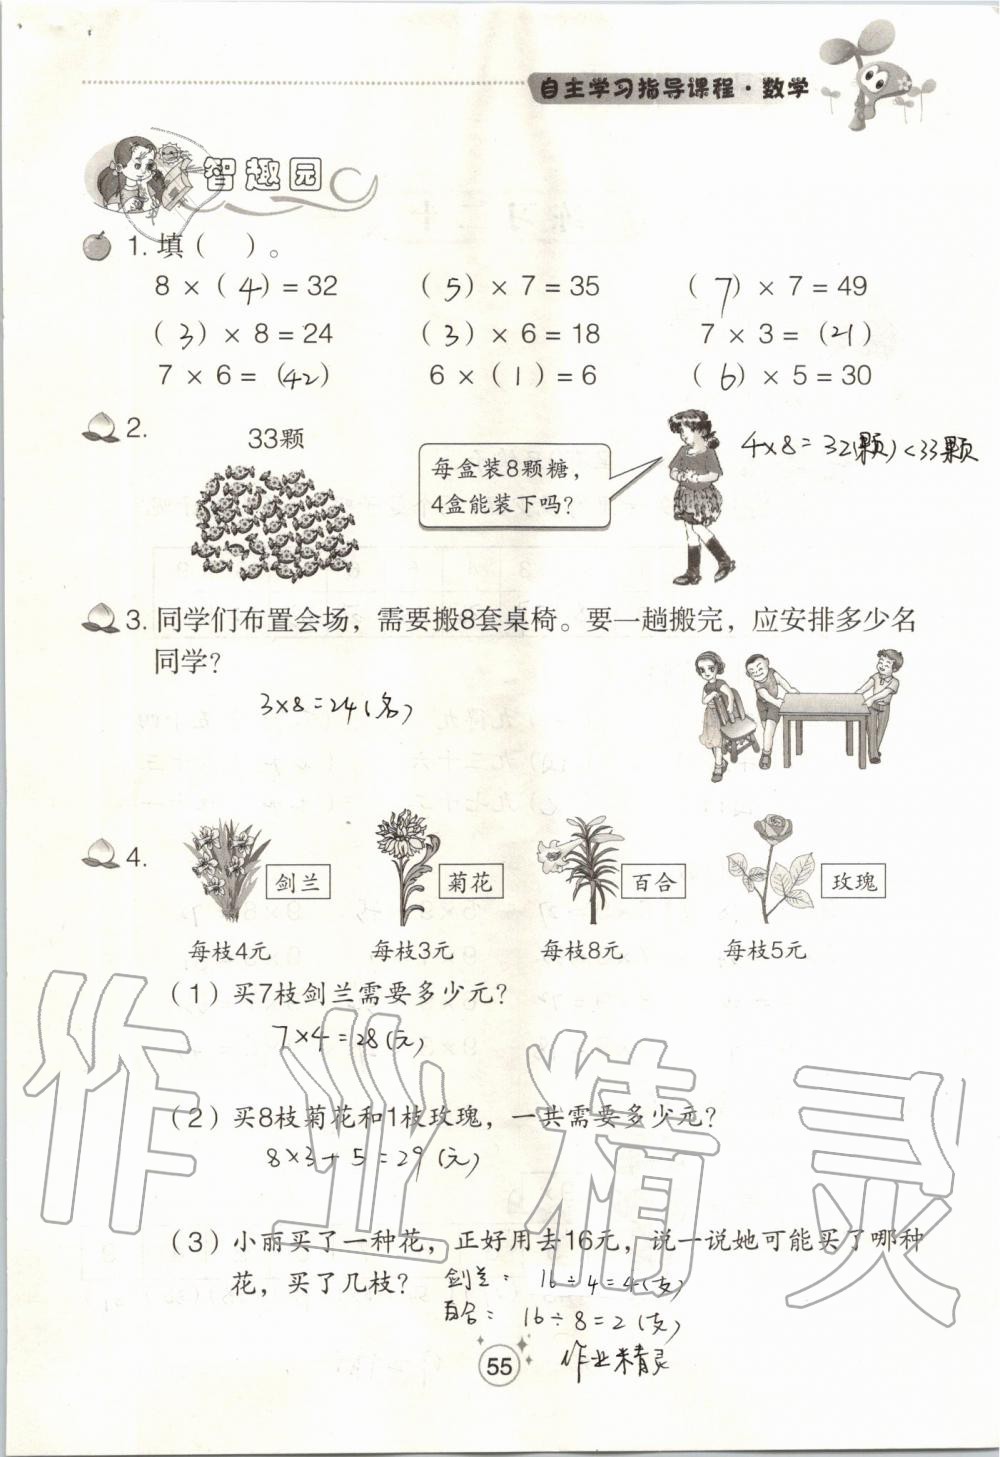 自主学习指导课程·数学
智趣园
1. 填（ ）。
8 × ( 4 ) = 32 ( 5 ) × 7 = 35 ( 7 ) × 7 = 49
( 3 ) × 8 = 24 ( 3 ) × 6 = 18 7 × 3 = ( 21 )
7 × 6 = ( 42 ) 6 × ( 1 ) = 6 ( 6 ) × 5 = 30
2.
33颗
每盒装8颗糖，
4盒能装下吗？
4×8=32(颗)<33颗
3. 同学们布置会场，需要搬8套桌椅。要一趟搬完，应安排多少名
同学？
3×8=24(名)
4.
剑兰 菊花 百合 玫瑰
每枝4元 每枝3元 每枝8元 每枝5元
（1）买7枝剑兰需要多少元？
7×4=28(元)
（2）买8枝菊花和1枝玫瑰，一共需要多少元？
8×3+5=29(元)
（3）小丽买了一种花，正好用去16元，说一说她可能买了哪种
花，买了几枝？ 剑兰： 16÷4=4(支)
百合： 16÷8=2(支)
作业精灵
55
作业精灵